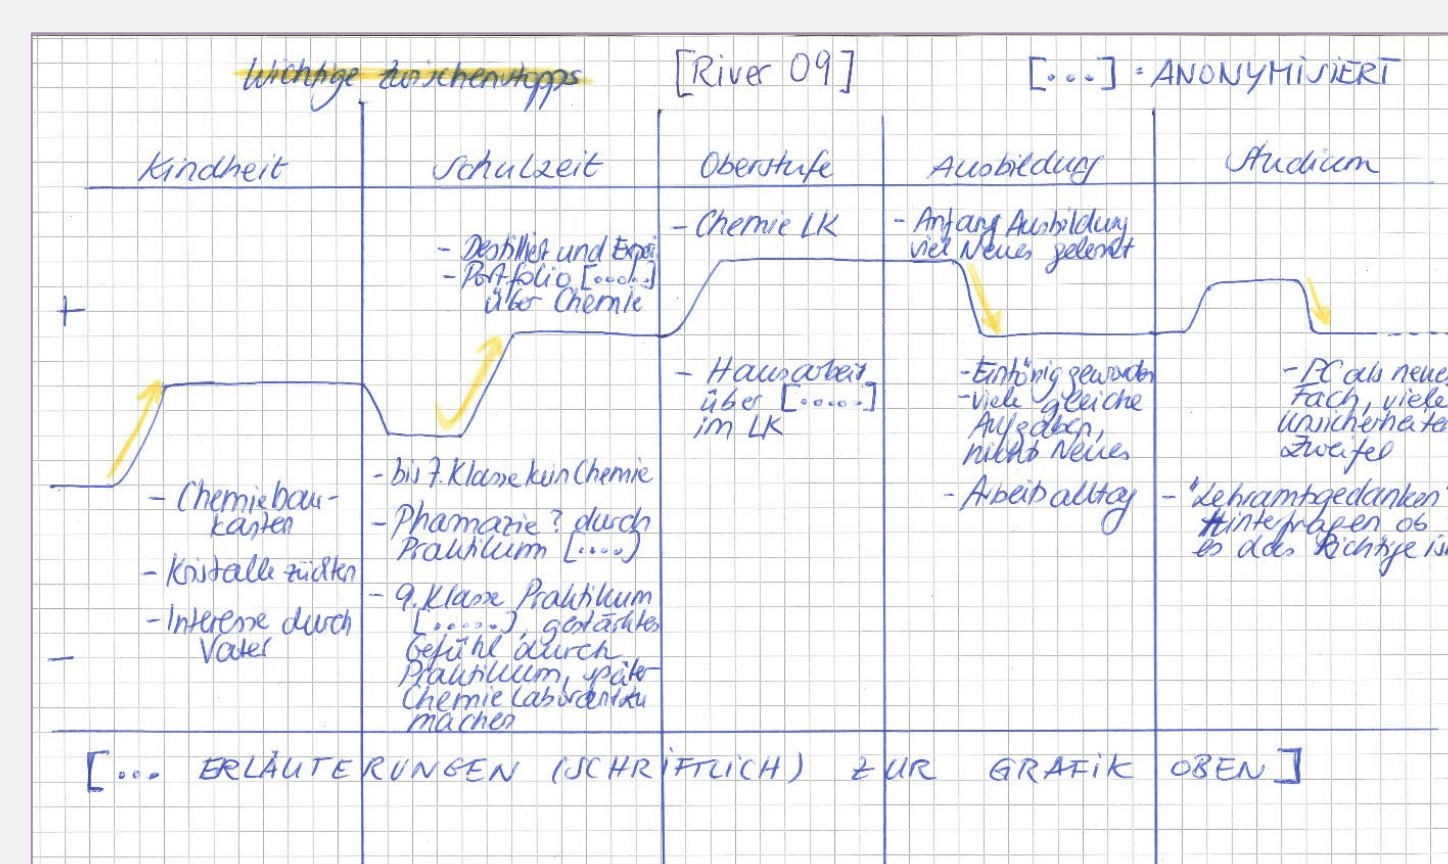 Wichtige Zwischenstopps
[River 09]
[...] = ANONYMISIERT
Kindheit
Schulzeit
Oberstufe
Ausbildung
Studium
+
-
- Chemiebau-
kasten
- Kristalle züchten
- Interesse durch
Vater
- Destilliert und Exper
- Portfolio [......]
über Chemie
- bis 7. Klasse kein Chemie
- Pharmazie? durch
Praktikum [....]
- 9. Klasse Praktikum
[.....], gestärktes
Gefühl durch
Praktikum, später
Chemielaborant zu
machen
- Chemie LK
- Hausarbeit
über [.....]
im LK
- Anfang Ausbildung
viel Neues gelernt
- Eintönig geworden
- viele gleiche
Aufgaben,
nichts Neues
- Arbeitsalltag
- PC als neues
Fach, viele
Unsicherheiten
Zweifel
- "Lehramtsgedanken"
Hinterfragen ob
es das Richtige ist
[... ERLÄUTERUNGEN (SCHRIFTLICH) ZUR GRAFIK OBEN]